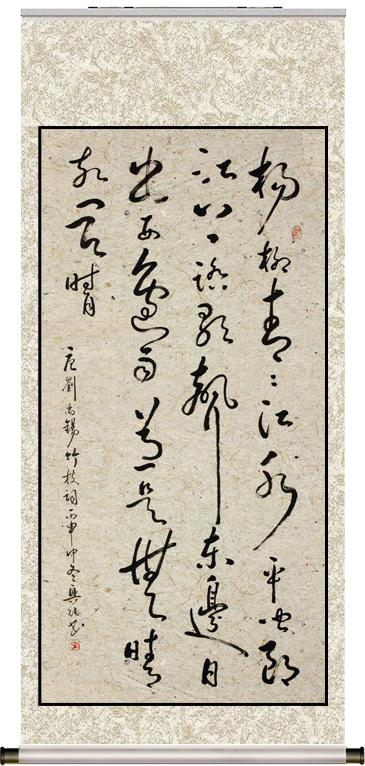 楊柳青〻江水平闻郎
江上踏歌聲東邊日
出西邊雨道是無晴
却有晴
唐劉禹錫竹枝詞丙申仲冬興書